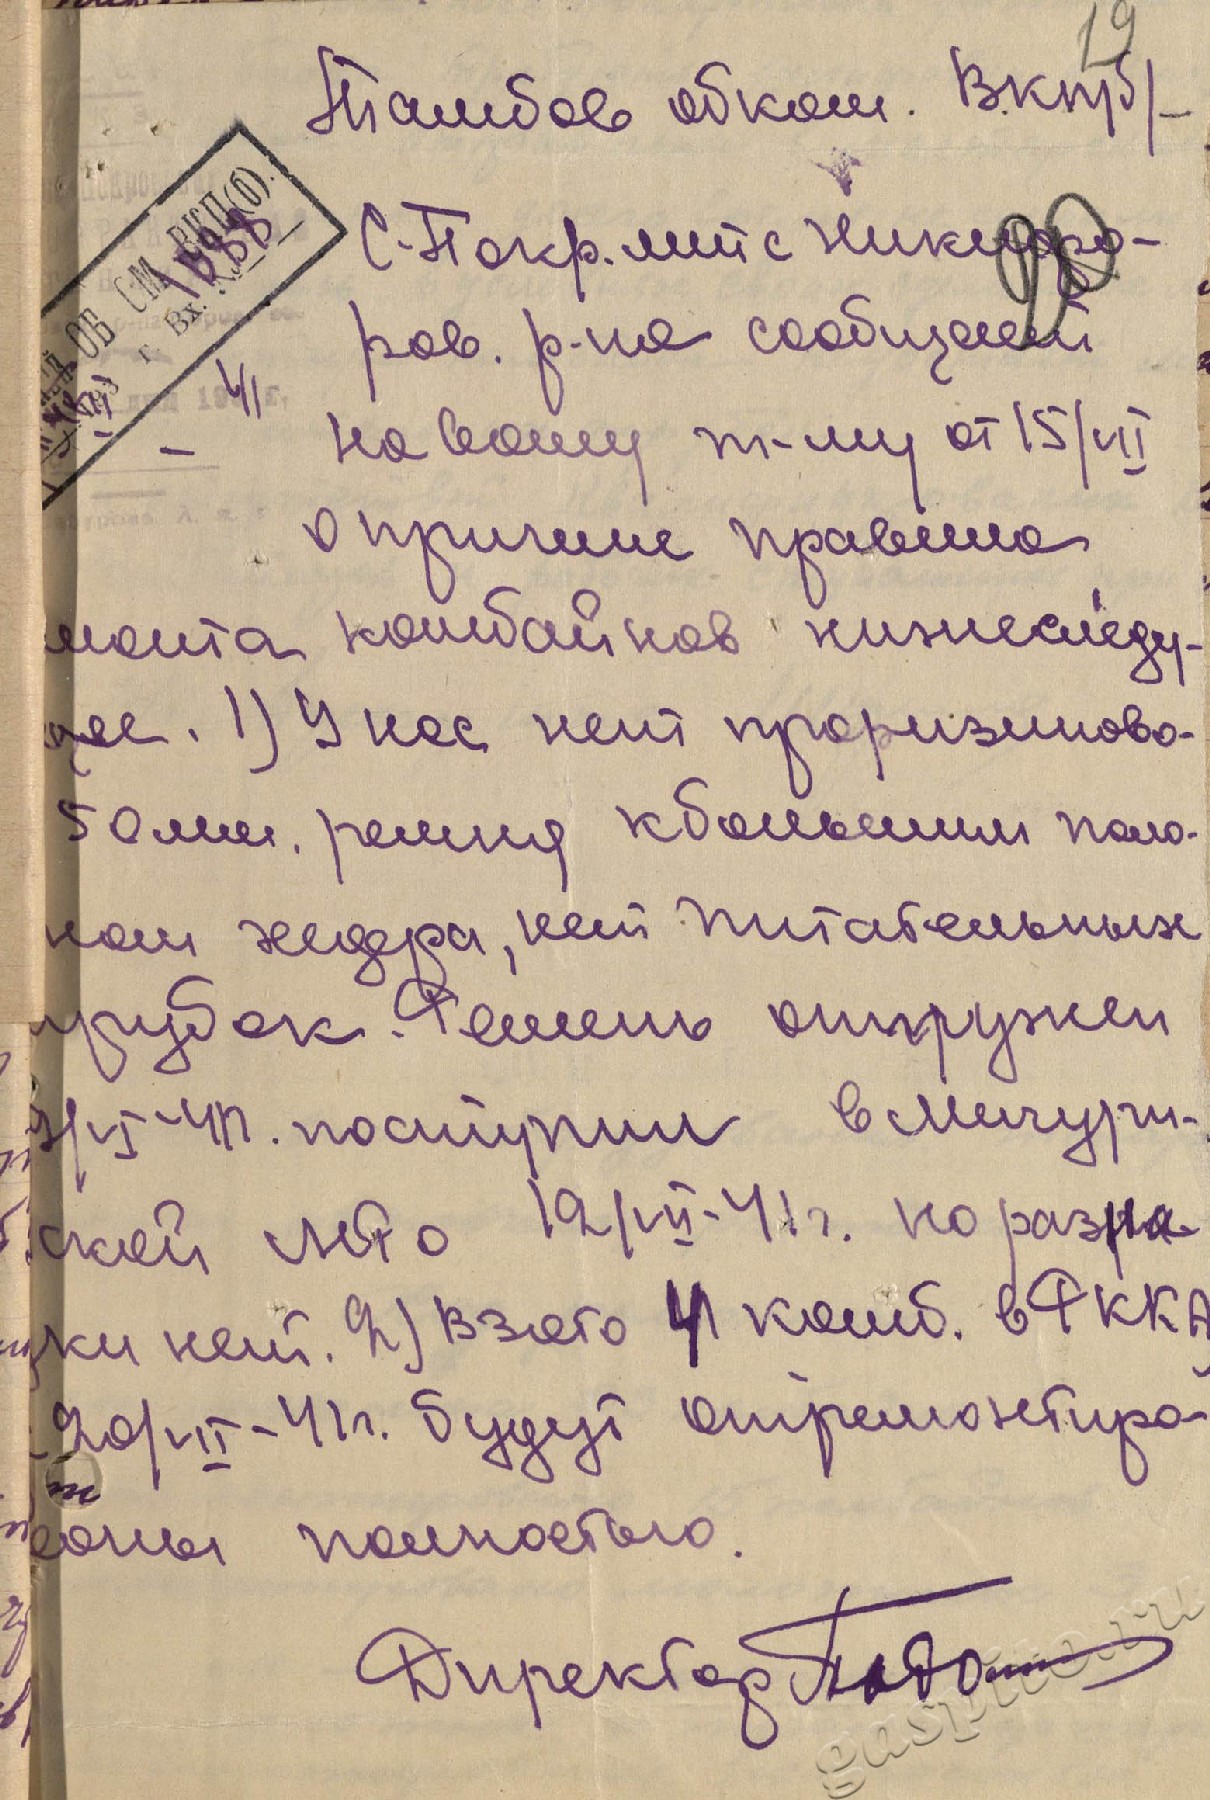 19
Тамбов обком. ВКП/б/-
С-Покр. мтс Никифо-
90
ров. р-на сообщает
на вашу т-му от 15/VII
о причине
монта комбайнов нижеследу-
щее. 1) У нас нет проризинова-
50 мм. ремня к большим поло-
ном хедера, нет питательных
трубок. Ремень отгружен
/VI-41г. поступил в Мичурин-
ской 12/VII-41г. но разна
ки нет. 2) Взято 4 комб. в РККА
20/VII-41г. будут отремонтиро-
ваны полностью.
Директор
ОБ СМ ВКП(б).
Вх. №
gaspito.ru